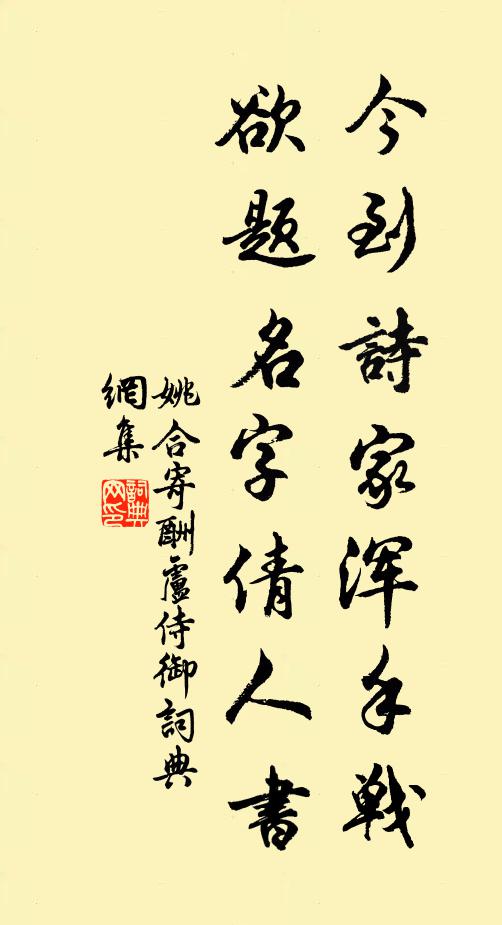 今到詩家浑手戰
欲題名字倩人書
姚合寄酬盧侍御詞典
網集
詞典网印